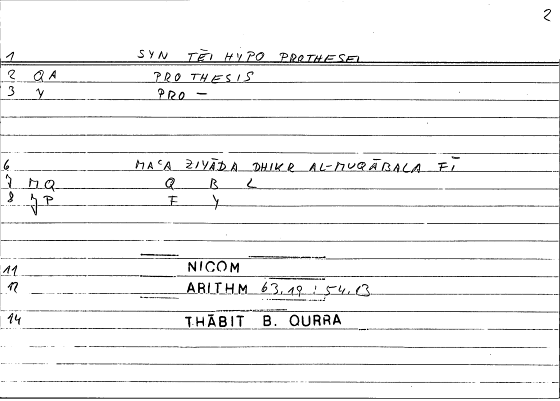 2
1 SYN TĒI HYPO PROTHESEI
2 QA PROTHESIS
3 Y PRO –
6 MAʿA ZIYĀDA DHIKR AL-MUQĀBALA FĪ
7 MQ Q B L
8 JP F Y
11 NICOM
12 ARITHM 63,19 : 54,13
14 THĀBIT B. QURRA